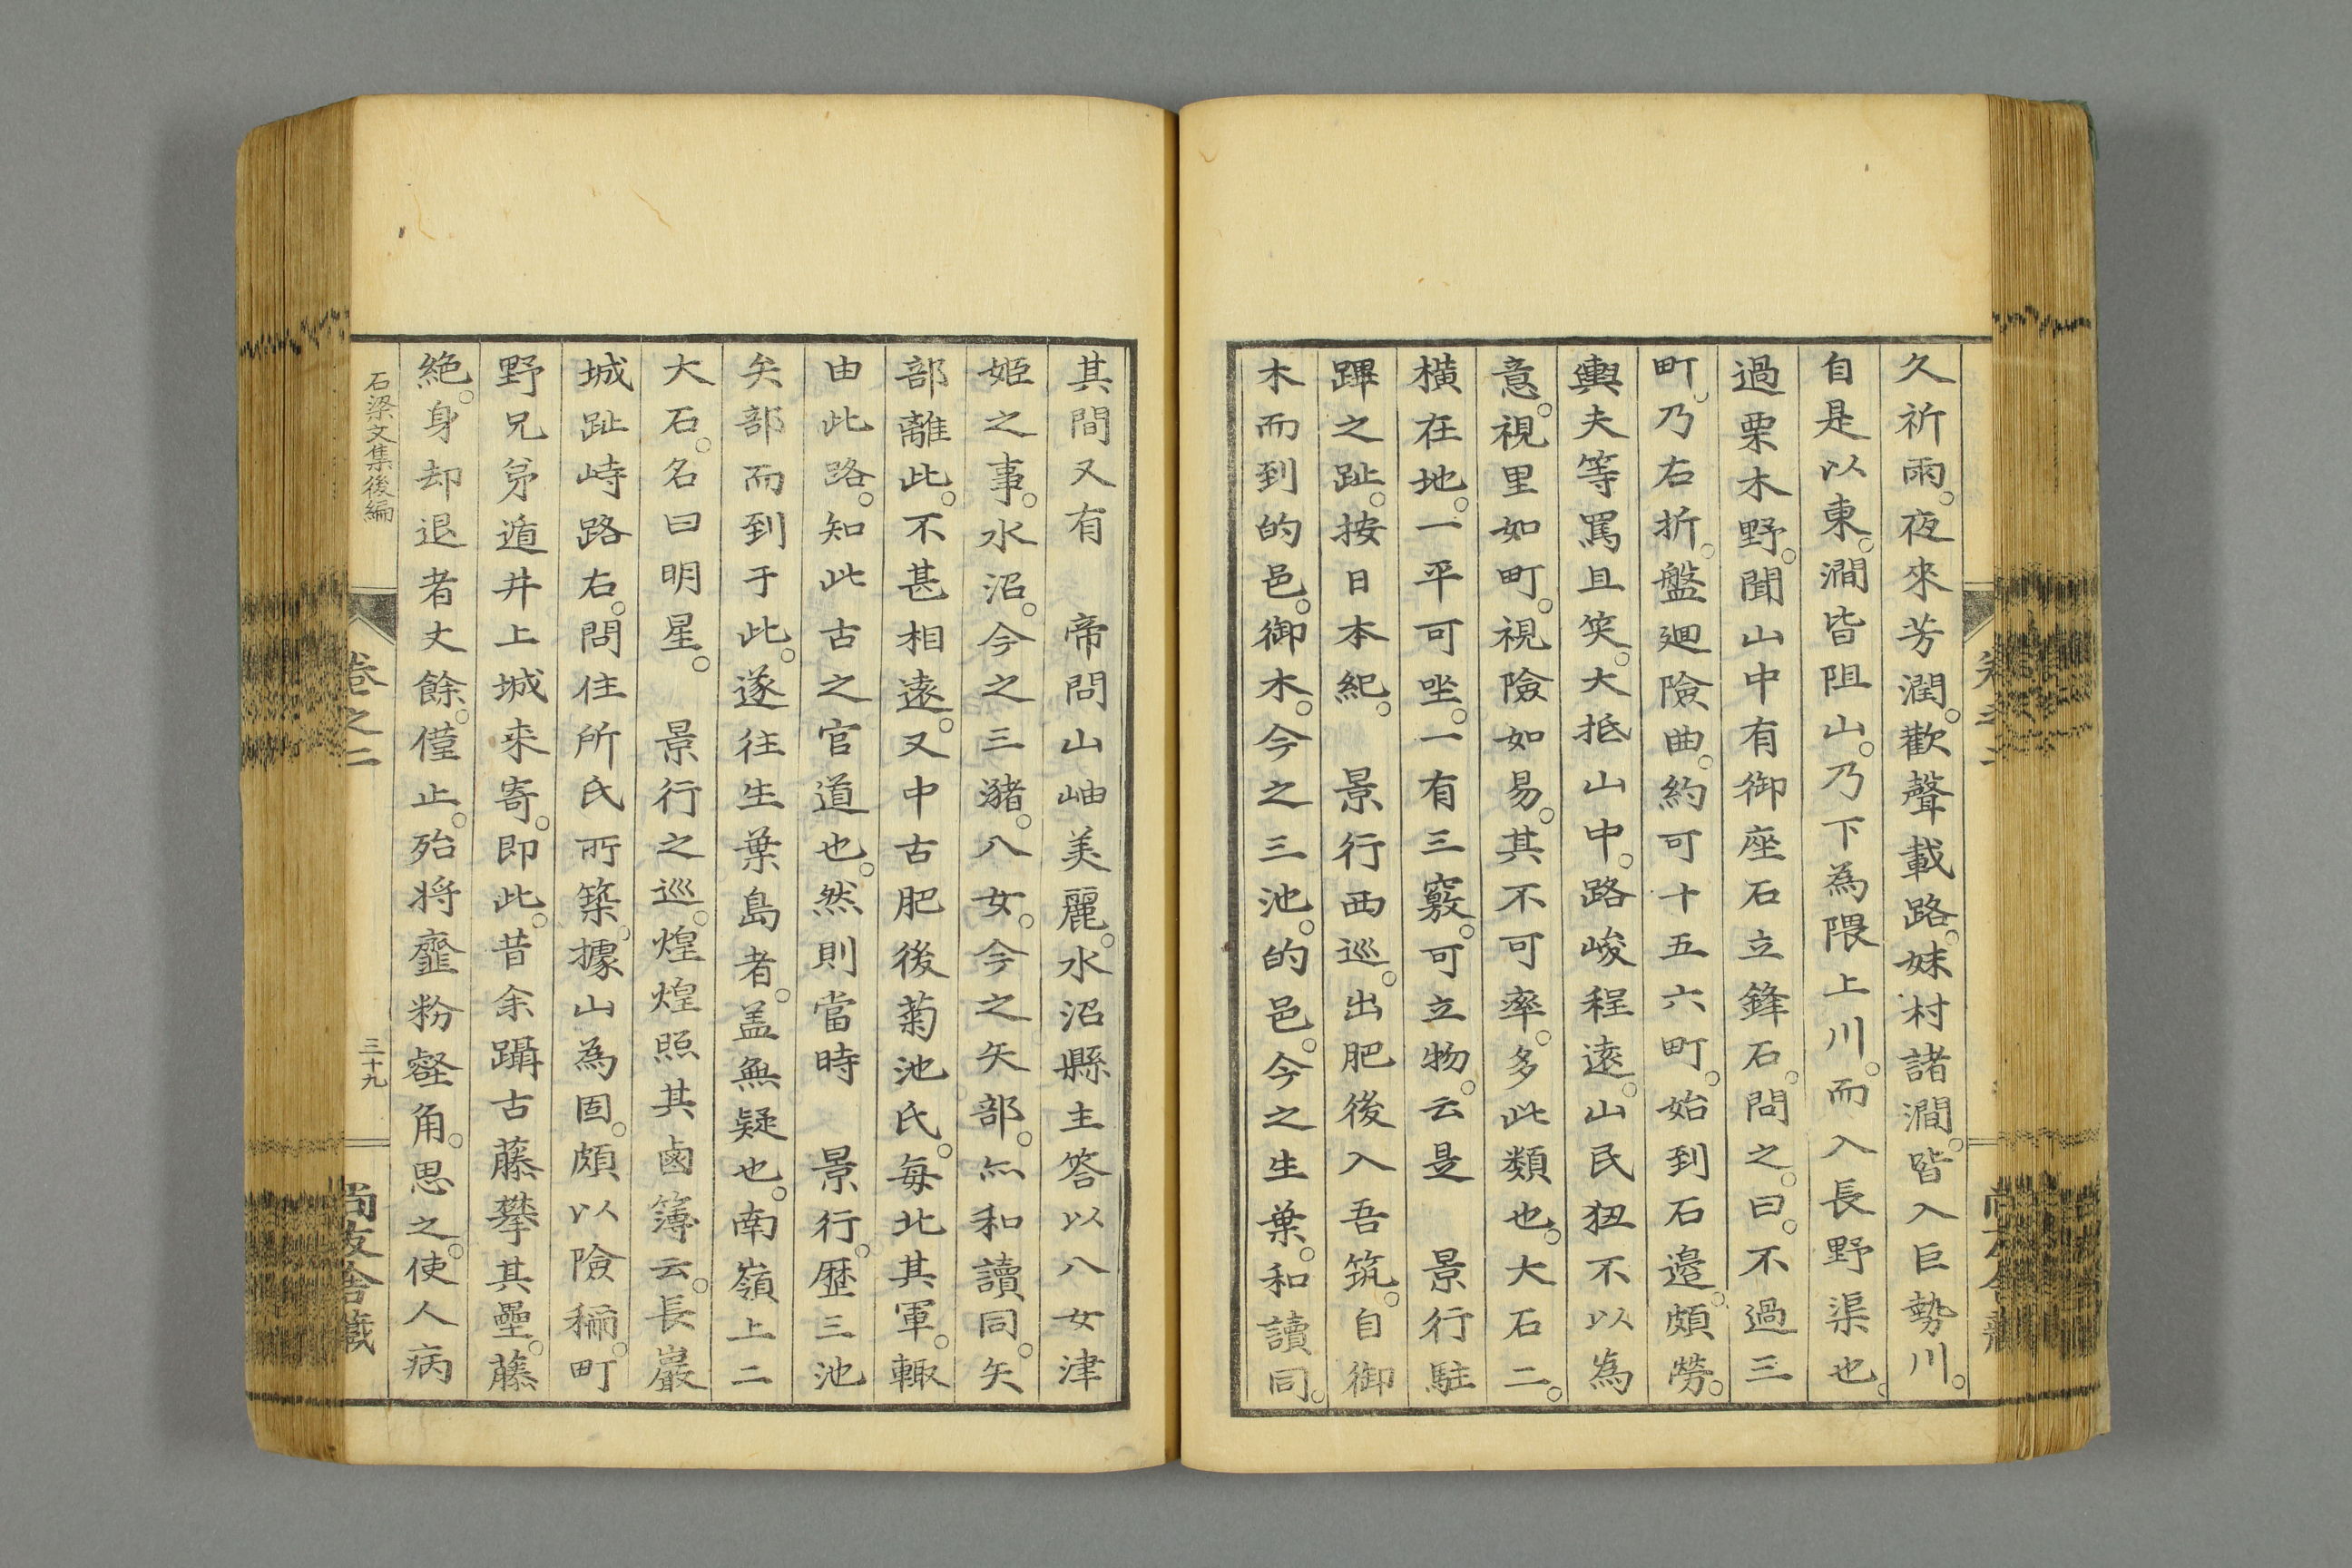 久祈雨。夜來芳潤。歡聲載路。妹村諸澗。皆入巨勢川。
自是以東。澗皆阻山。乃下為隈上川。而入長野渠也。
過栗木野。聞山中有御座石立鋒石。問之。曰。不過三
町。乃右折。盤廻險曲。約可十五六町。始到石邉。頗勞。
輿夫等罵且笑。大抵山中。路峻程遠。山民狃不以為
意。視里如町。視險如易。其不可率。多此類也。大石二。
橫在地。一平可坐。一有三竅。可立物。云是　景行駐
蹕之趾。按日本紀。　景行西巡。出肥後入吾筑。自御
木而到的邑。御木。今之三池。的邑。今之生葉。和讀同。
其間又有　帝問山岫美麗。水沼縣主答以八女津
姫之事。水沼。今之三潴。八女。今之矢部。亦和讀同。矢
部離此。不甚相遠。又中古肥後菊池氏。每北其軍。輙
由此路。知此古之官道也。然則當時　景行。歴三池
矣部而到于此。遂往生葉島者。盖無疑也。南嶺上二
大石。名曰明星。　景行之巡。煌煌照其鹵簿云。長巖
城趾峙路右。問住所氏所築。據山為固。頗以險稱。町
野兄弟遁井上城来寄。即此。昔余躡古藤攀其壘。藤
絶。身却退者丈餘。僅止。殆将齏粉壑角。思之。使人病
石梁文集後編
卷之二
三十九
尚友舎藏